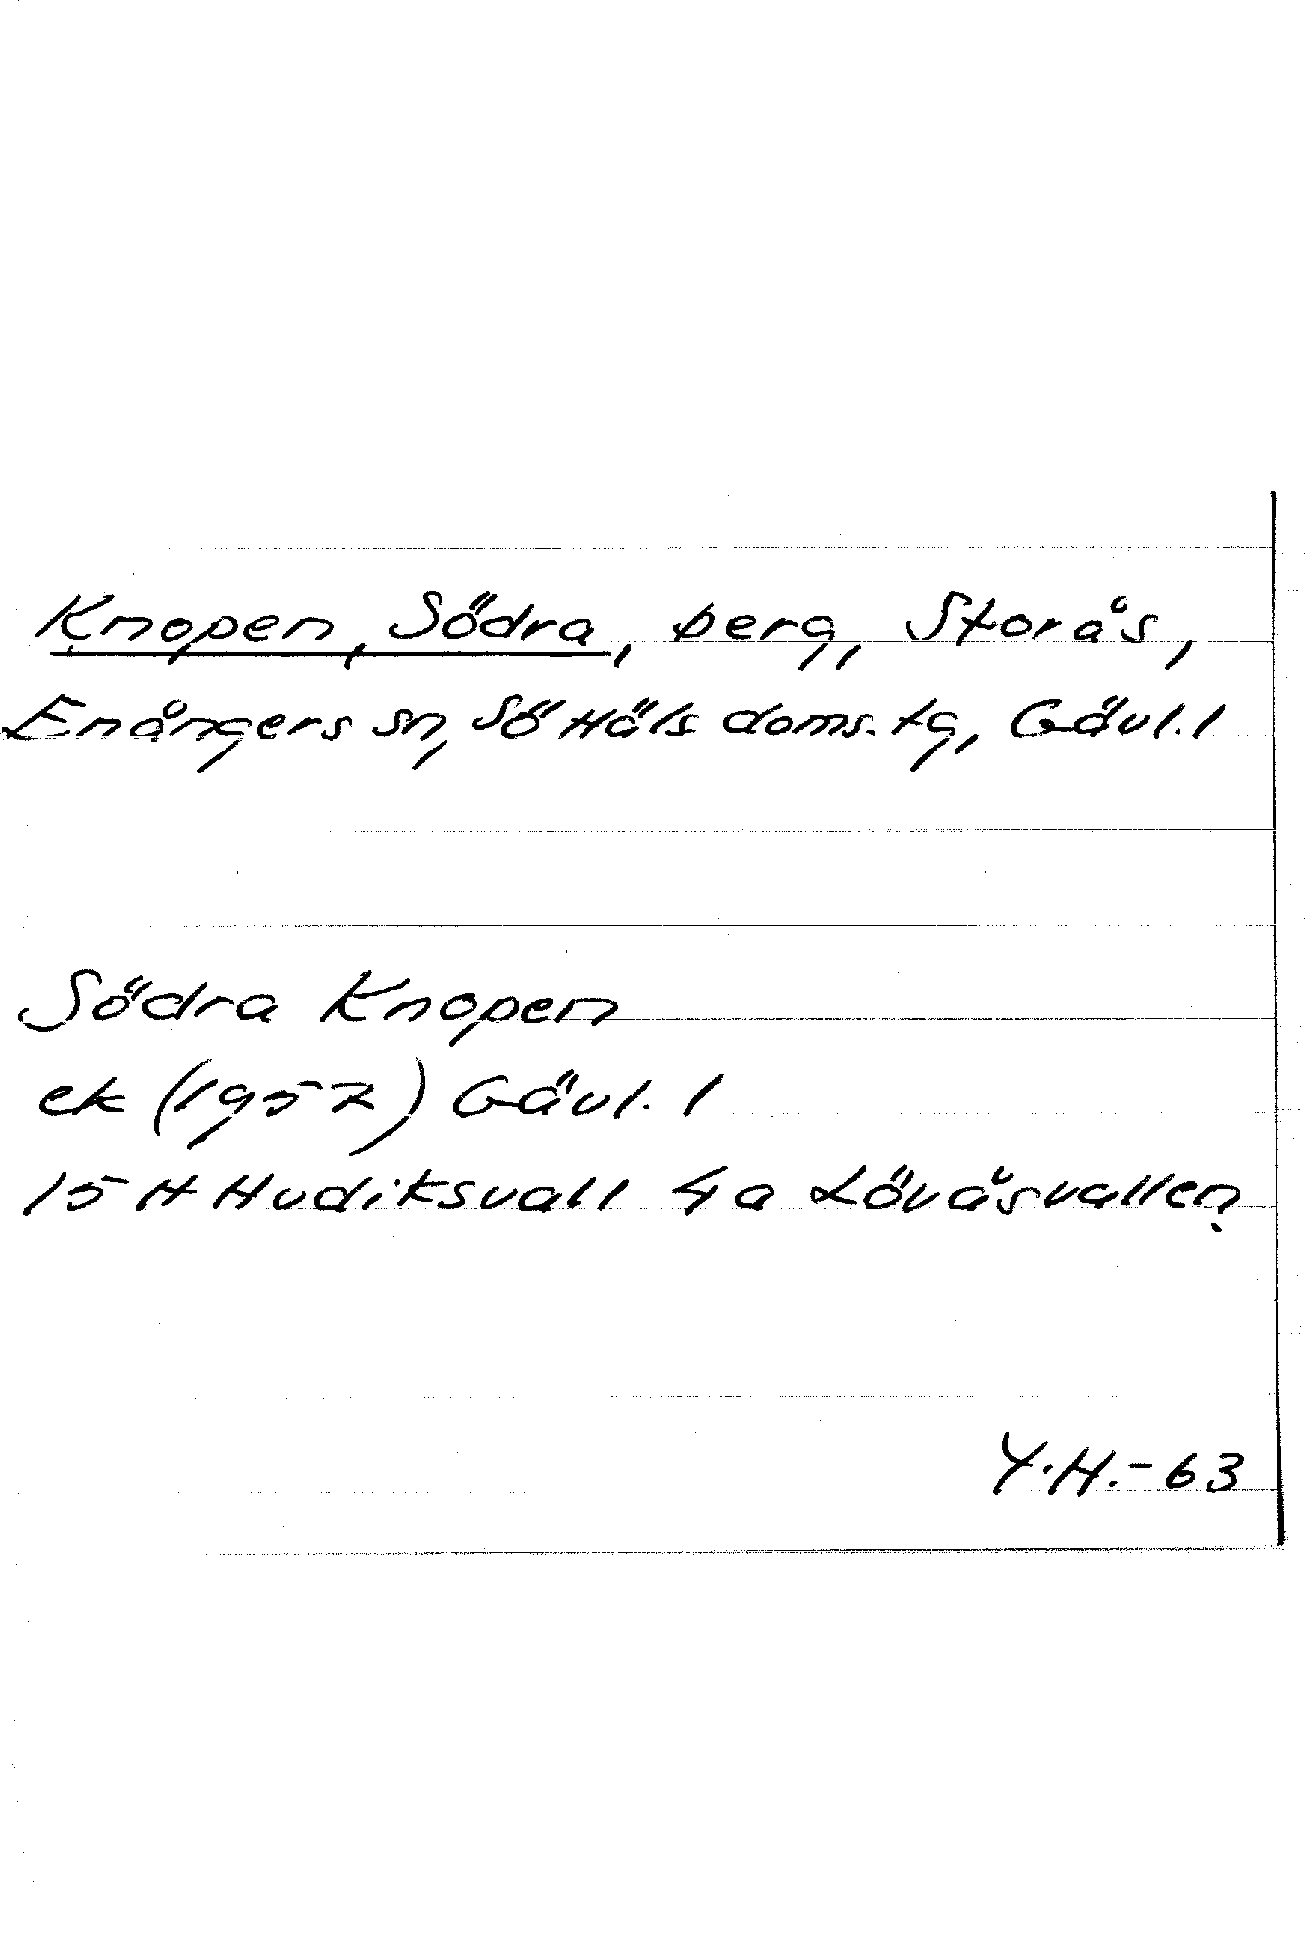 Knopen, Södra, berg, Storås,
Enångers sn, Sö Häls doms. tg, Gävl. l
Södra Knopen
ek (1957) Gävl. l
15 H Hudiksvall 4 a Lövåsvallen
Y.H.-63